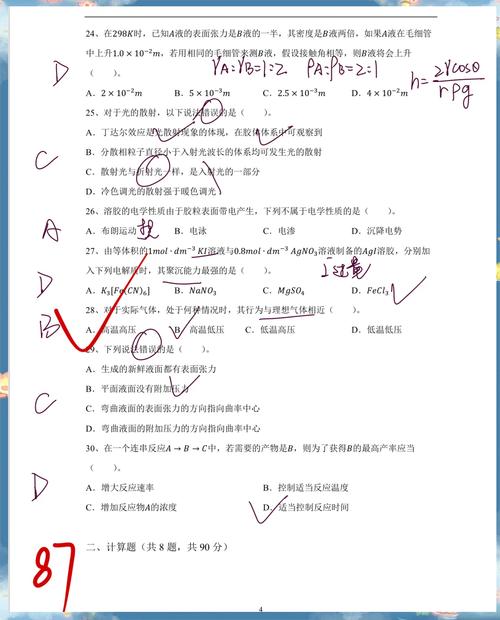 24、在298K时，已知A液的表面张力是B液的一半，其密度是B液两倍，如果A液在毛细管
中上升1.0×10⁻²m，若用相同的毛细管来测B液，假设接触角相等，则B液将会上升
D
（    ）。 γA=γB=1=2 ρA=ρB=2=1 h=2γcosθ/rρg
A．2×10⁻²m B．5×10⁻³m C．2.5×10⁻³m D．4×10⁻²m
25、对于光的散射，以下说法错误的是（    ）。
A．丁达尔效应是光散射现象的体现，在胶体体系中可观察到
B．分散相粒子直径小于入射光波长的体系均可发生光的散射
C
C．散射光与折射光一样，是入射光的一部分
D．冷色调光的散射强于暖色调光
26、溶胶的电学性质由于胶粒表面带电产生，下列不属于电学性质的是（    ）。
A
A．布朗运动 B．电泳 C．电渗 D．沉降电势
27、由等体积的1mol·dm⁻³ KI溶液与0.8mol·dm⁻³ AgNO₃溶液制备的AgI溶胶，分别加
入下列电解质时，其聚沉能力最强的是（    ）。 I过量
D
A．K₃[Fe(CN)₆] B．NaNO₃ C．MgSO₄ D．FeCl₃
28、对于实际气体，处于何种情况时，其行为与理想气体相近（    ）。
B
A．高温高压 B．高温低压 C．低温高压 D．低温低压
29、下列说法错误的是（    ）。
A．生成的新鲜液面都有表面张力
B．平面液面没有附加压力
C
C．弯曲液面的表面张力的方向指向曲率中心
D．弯曲液面的附加压力的方向指向曲率中心
30、在一个连串反应A→B→C中，若需要的产物是B，则为了获得B的最高产率应当
（    ）。
D
A．增大反应速率 B．控制适当反应温度
C．增加反应物A的浓度 D．适当控制反应时间
87
二、计算题（共8题，共90分）
4